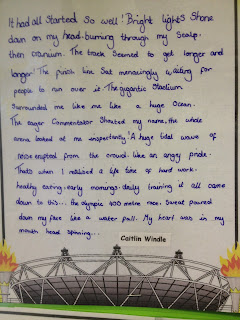 It had all started so well! Bright lights shone
down on my head burning through my scalp.
then cranium. The track seemed to get longer and
longer! The finish line sat menacingly waiting for
people to run over it. The gigantic Stadium
Surrounded me like me like a huge Ocean.
The eager Commentator Shouted my name, the whole
arena looked at me impatiently! A huge tidal wave of
noise erupted from the crowd. like an angry pride.
Thats when I realised a life time of hard work.
healthy eating. early mornings. daily training it all came
down to this... the olympic 400 metre race. Sweat poured
down my face like a water fall. My heart was in my
mouth head spinning...
Caitlin Windle